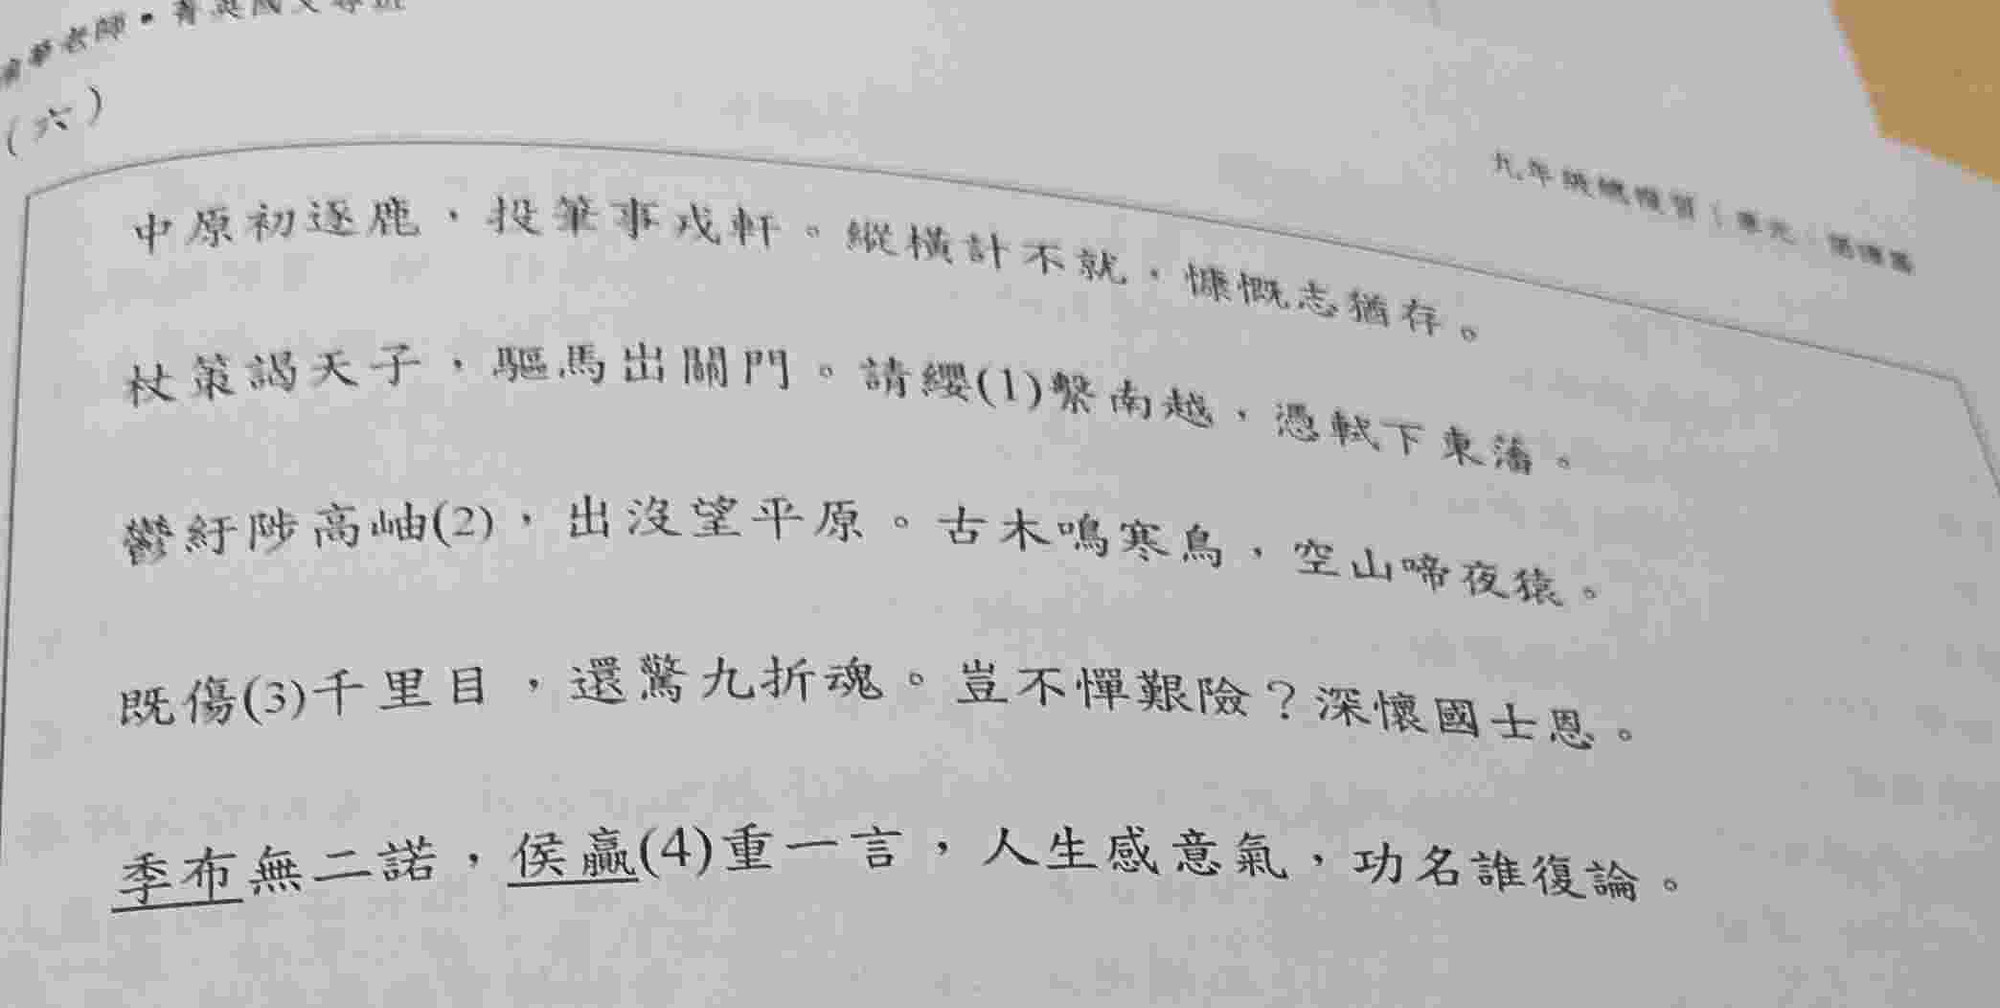 老師•菁英國文專班
(六)
九年級總複習
中原初逐鹿，投筆事戎軒。縱橫計不就，慷慨志猶存。
杖策謁天子，驅馬出關門。請纓(1)繫南越，憑軾下東藩。
鬱紆陟高岫(2)，出沒望平原。古木鳴寒鳥，空山啼夜猿。
既傷(3)千里目，還驚九折魂。豈不憚艱險？深懷國士恩。
季布無二諾，侯嬴(4)重一言，人生感意氣，功名誰復論。